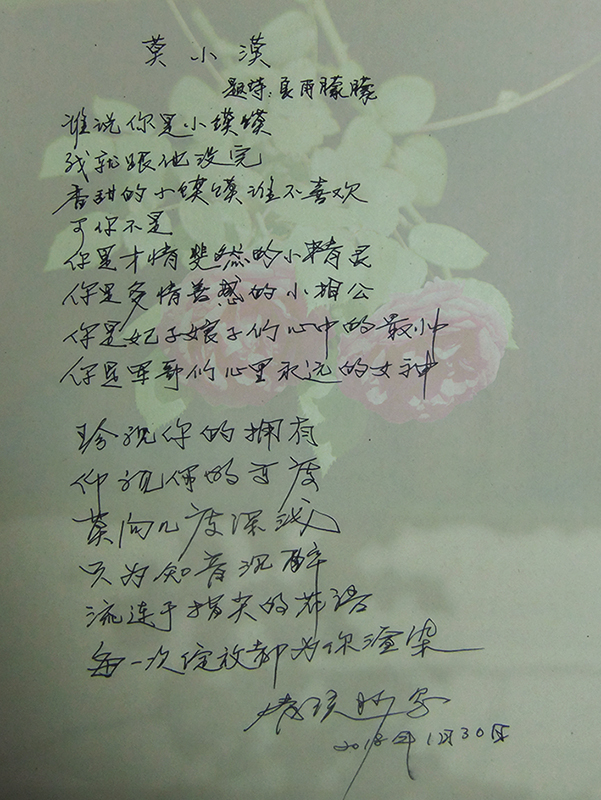 莫小漠
题诗：夏雨朦朦
谁说你是小馍馍
我就跟他没完
香甜的小馍馍谁不喜欢
可你不是
你是才情斐然的小精灵
你是多情善感的小相公
你是妃子娘子们心中的最帅
你是军哥们心里永远的女神
珍视你的拥有
仰视你的高度
莫问几度深浅
只为知音沉醉
流连于指尖的花语
每一次绽放都为你渲染
2018年12月30日